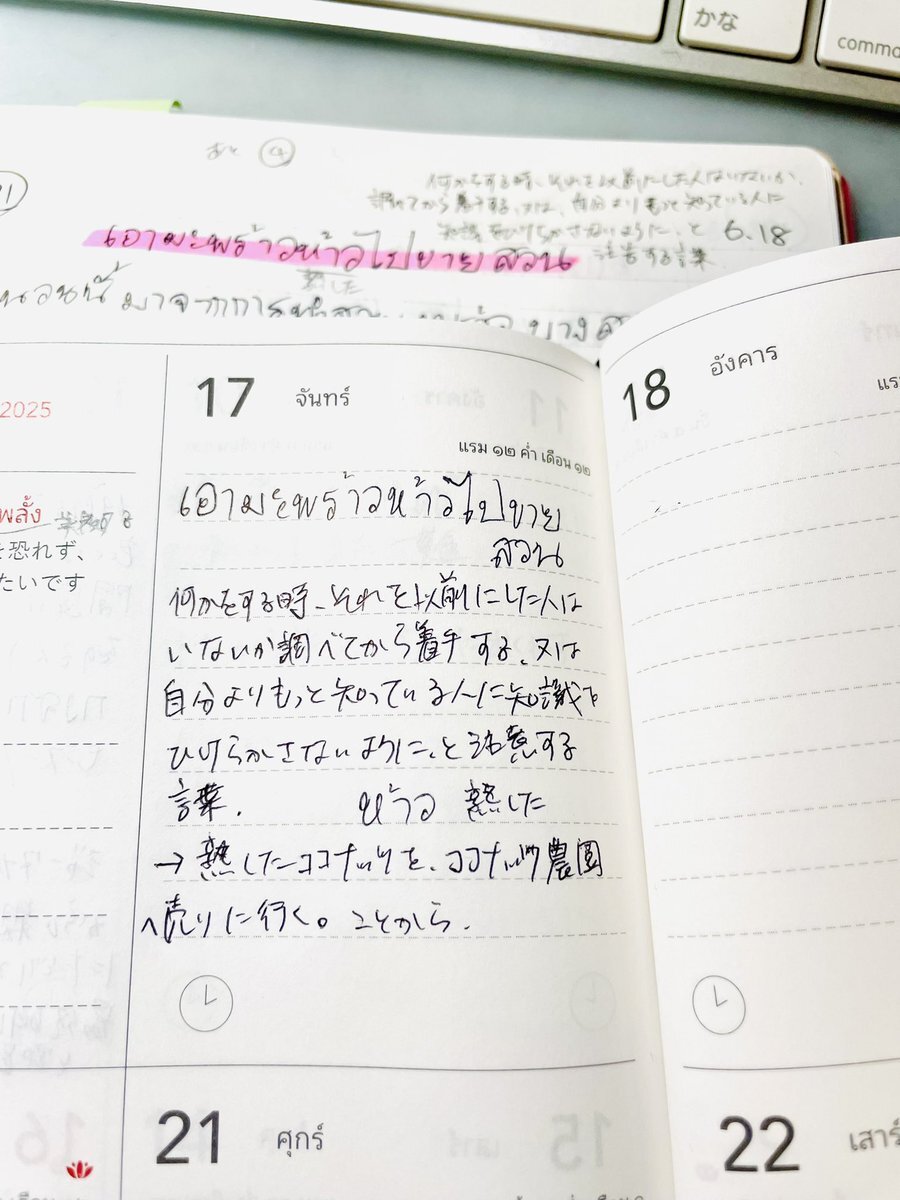 かな
comma
あと
何かをする時、それを以前にした人はいないか、
調べてから着手する、又は、自分よりもっと知っている人に
知識をひけらかさないように、と
6.18
เอามะพร้าวห้าวไปขายสวน
注意する言葉
熟した
มาจากการทำสวน
บาง
2025
17 จันทร์
แรม ๑๒ ค่ำ เดือน ๑๒
เอามะพร้าวห้าวไปขาย
สวน
何かをする時、それを以前にした人は
いないか調べてから着手する、又は
自分よりもっと知っている人に知識を
ひけらかさないように、と注意する
言葉.
ห้าว 熟した
→熟したココナッツを、ココナッツ農園
へ売りに行く。ことから.
18 อังคาร
แร
พลั้ง
を恐れず、
たいです
21 ศุกร์
22 เสาร์
16